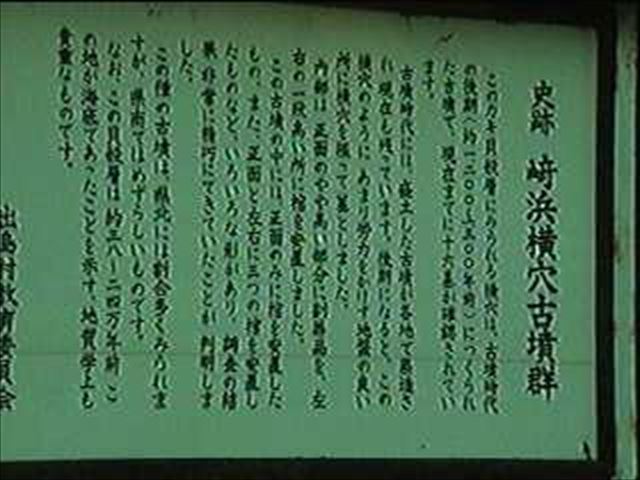 史跡 崎浜横穴古墳群
このカキ貝殻層にみられる横穴は、古墳時代
の後期(約一三〇〇〜一五〇〇年前)につくられ
た古墳で、現在までに十六基が確認されてい
ます。
古墳時代には、盛土した古墳が各地で築造さ
れ現在も残っています。後期になると、この
横穴のように あまり労力をかけず地盤の良い
所に横穴を掘って墓としました。
内部は、正面のやや高い部分に副葬品を、左
右の一段高い所に棺を安置しました。
この古墳の中には、正面のみに棺を安置した
もの、また、正面と左右に三つの棺を安置し
たものなど、いろいろな形があり、調査の結
果、非常に精巧にできていたことが 判明しま
した。
この種の古墳は、県北には割合多くみられま
すが、県南ではめずらしいものです。
なお、この貝殻層は 約 万年前 こ
の地が海底であったことを示す、地質学上も
貴重なものです。
出島村教育委員会